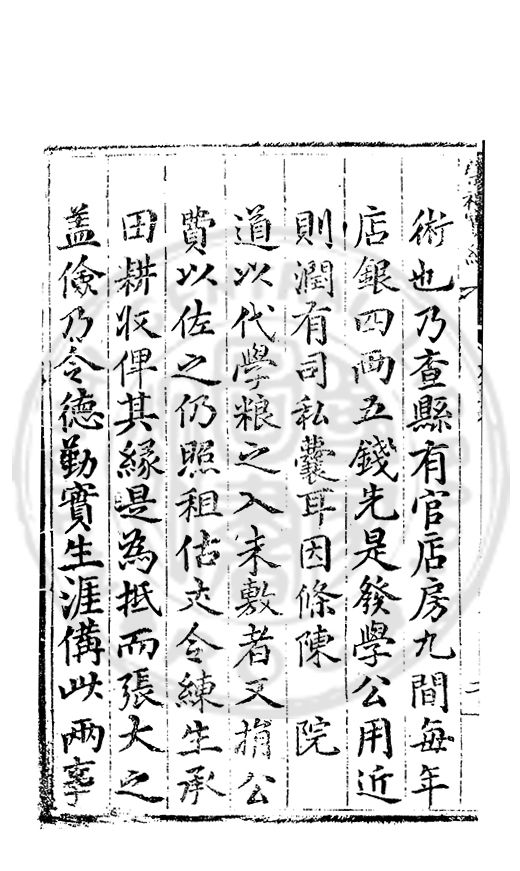 術也乃查縣有官店房九間每年
店銀四兩五錢先是發學公用近
則潤有司私囊耳因條陳　院
道以代學粮之入未敷者又捐公
費以佐之仍照租估丈令練生承
田耕收俾其緣是為抵而張大之
蓋儉乃令德勤實生涯備此兩事